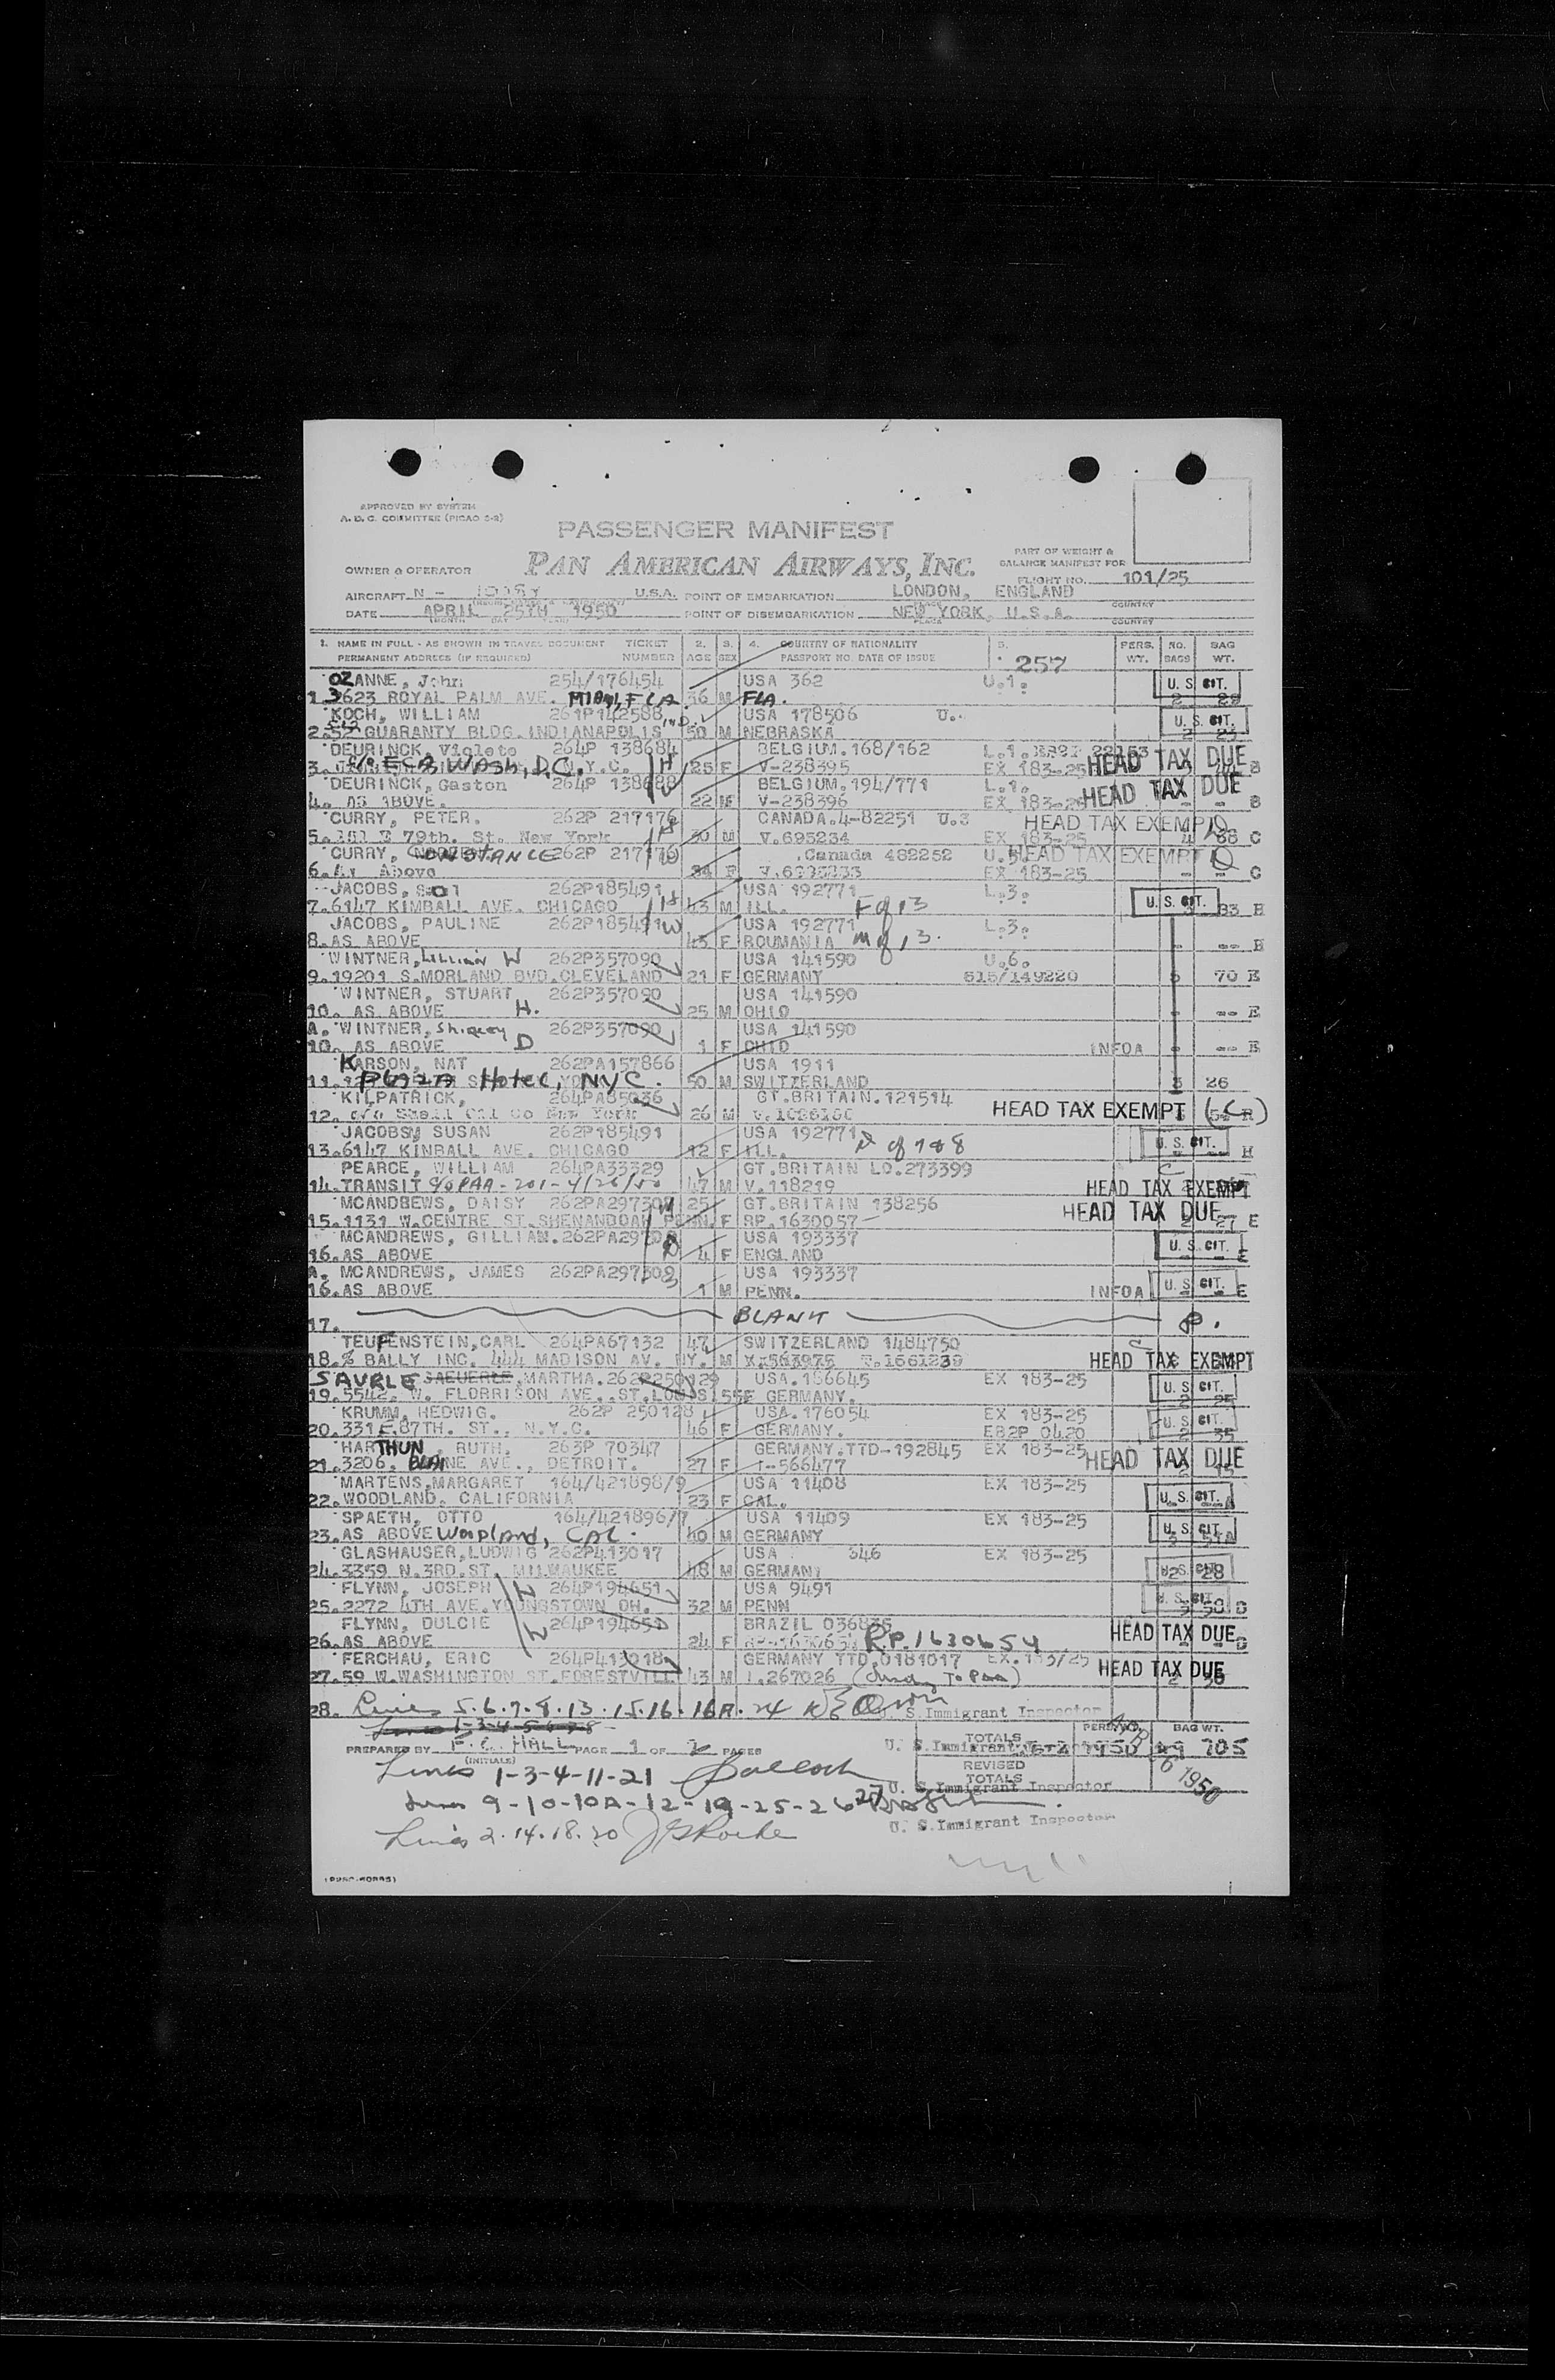 APPROVED BY SYSTEM
A. D. C. COMMITTEE (PICAO 5-2)
PASSENGER MANIFEST
OWNER & OPERATOR PAN AMERICAN AIRWAYS, INC.
PART OF WEIGHT & BALANCE MANIFEST FOR
FLIGHT NO. 101/25
AIRCRAFT N - U.S.A. POINT OF EMBARKATION LONDON, ENGLAND COUNTRY
DATE APRIL 25TH 1950 POINT OF DISEMBARKATION NEW YORK, U.S.A. COUNTRY
1. NAME IN FULL - AS SHOWN IN TRAVEL DOCUMENT TICKET 2. 3. 4. COUNTRY OF NATIONALITY 5. PERS. NO. BAG
PERMANENT ADDRESS (IF REQUIRED) NUMBER AGE SEX PASSPORT NO. DATE OF ISSUE 257 WT. BAGS WT.
OZANNE, John 254/176454 USA 362 U.1. U.S. CIT.
1. 3623 ROYAL PALM AVE. MIAMI, FLA. 36 M FLA. 2 29
KOCH, WILLIAM 261P142588 USA 178506 U. U. S. CIT.
2. 52 GUARANTY BLDG. INDIANAPOLIS IND. 50 M NEBRASKA 2 23
DEURINCK, Violete 264P 138684 BELGIUM.168/162 L.1. HEAD TAX DUE
3. c/o ECA WASH, D.C. N.Y.C. H 25 F V-238395 EX 183-25 B
DEURINCK, Gaston 264P 138688 BELGIUM.194/771 L.1. HEAD TAX DUE
4. AS ABOVE. W 22 M V-238396 EX 183-25 - - B
CURRY, PETER. 262P 217176 CANADA.4-82251 U.3 HEAD TAX EXEMPT
5. 151 E 79th. St. New York H 30 M V.695234 EX 183-25 4 88 C
CURRY, CONSTANCE 262P 217176 Canada 482252 U.5. HEAD TAX EXEMPT
6. As Above W 34 F EX 183-25 - - C
JACOBS, Sol 262P185491 USA 192771 L.3. U.S. CIT.
7. 6147 KIMBALL AVE. CHICAGO H 43 M ILL. F of 13 83 E
JACOBS, PAULINE 262P185491 W USA 192771 L.3.
8. AS ABOVE 43 F ROUMANIA M of, 13. - -- E
WINTNER, LILLIAN W 262P357090 USA 141590 U.6.
9. 19201 S.MORLAND BVD.CLEVELAND 21 F GERMANY 515/149220 5 70 E
WINTNER, STUART 262P357090 USA 141590
10. AS ABOVE H. 25 M OHIO - -- E
A. WINTNER, Shirley 262P357090 USA 141590
10. AS ABOVE D 1 F OHIO INFOA - -- E
KARSON, NAT 262PA157866 USA 1911
11. PLAZA Hotel, NYC. 50 M SWITZERLAND 3 26
KILPATRICK, 264PA85036 GT.BRITAIN.121514 HEAD TAX EXEMPT (C)
12. c/o Shell Oil Co New York 26 M
JACOBS, SUSAN 262P185491 USA 192771 D of 7 & 8 U. S. CIT.
13. 6147 KINBALL AVE. CHICAGO 12 F ILL. H
PEARCE, WILLIAM 264PA33329 GT.BRITAIN LO.273399 C
14. TRANSIT c/o PAA - 201 - 4/26/50 47 M V.118219 HEAD TAX EXEMPT
MCANDREWS, DAISY 262PA297308 M 25 GT.BRITAIN 138256 HEAD TAX DUE
15. 1131 W.CENTRE ST.SHENANDOAH PENN. F RP.1630057 2 27 E
MCANDREWS, GILLIAN. 262PA297308 USA 193337 U.S. CIT.
16. AS ABOVE D 4 F ENGLAND E
A. MCANDREWS, JAMES 262PA297308 USA 193337
16. AS ABOVE S 1 M PENN. INFOA U.S. CIT. E
17. BLANK
TEUFENSTEIN, CARL 264PA67132 47 SWITZERLAND 1484750 C
18. % BALLY INC. 444 MADISON AV. NY. M HEAD TAX EXEMPT
SAURLE SAEUERLE, MARTHA. 262P250129 USA.166645 EX 183-25 U.S. CIT.
19. 5542. W. FLORRISON AVE., ST.LOUIS 55F GERMANY. 2 25
KRUMM, HEDWIG. 262P 250128 USA.176054 EX 183-25 U.S. CIT.
20. 331 E.87TH. ST., N.Y.C. 46 F GERMANY. EB2P 0420 2 35
HARTHUN, RUTH. 263P 70347 GERMANY.TTD-192845 EX 183-25 HEAD TAX DUE
21. 3206. BLAINE AVE., DETROIT. 27 F I-566477 2 15
MARTENS, MARGARET 164/421898/9 USA 11408 EX 183-25
22. WOODLAND. CALIFORNIA 23 F CAL. U.S. CIT.
SPAETH, OTTO 164/421896/7 USA 11409 EX 183-25
23. AS ABOVE Woodland, CAL. 40 M GERMANY U.S. CIT.
GLASHAUSER, LUDWIG 262P413017 USA 346 EX 183-25
24. 3359 N.3RD.ST. MILWAUKEE 48 M GERMANY U.S. CIT. 2 28
FLYNN, JOSEPH H 264P194651 USA 9491 U.S. CIT.
25. 2272 4TH AVE.YOUNGSTOWN OH. 32 M PENN 3 50 D
FLYNN, DULCIE W 264P194651 BRAZIL 036835
26. AS ABOVE 24 F R.P.1630654 HEAD TAX DUE D
FERCHAU, ERIC 264P413018 GERMANY TTD.0181017 EX.183/25
27. 59 W.WASHINGTON ST.FORESTVILL 43 M I.267026 HEAD TAX DUE 2 30
28. Lines 5.6.7.8.13.15.16.16A.24 U. S. Immigrant Inspector
Lines 1-3-4-5-6-7-8 TOTALS PERS. WT. BAG WT.
PREPARED BY F.C. HALL (INITIALS) PAGE 1 OF 2 PAGES U. S. Immigrant 49 705
REVISED TOTALS
APR 26 1950
Lines 1-3-4-11-21 U. S. Immigrant Inspector
Lines 9-10-10A-12-19-25-26 27
U. S. Immigrant Inspector
Lines 2.14.18.20 J G Roche